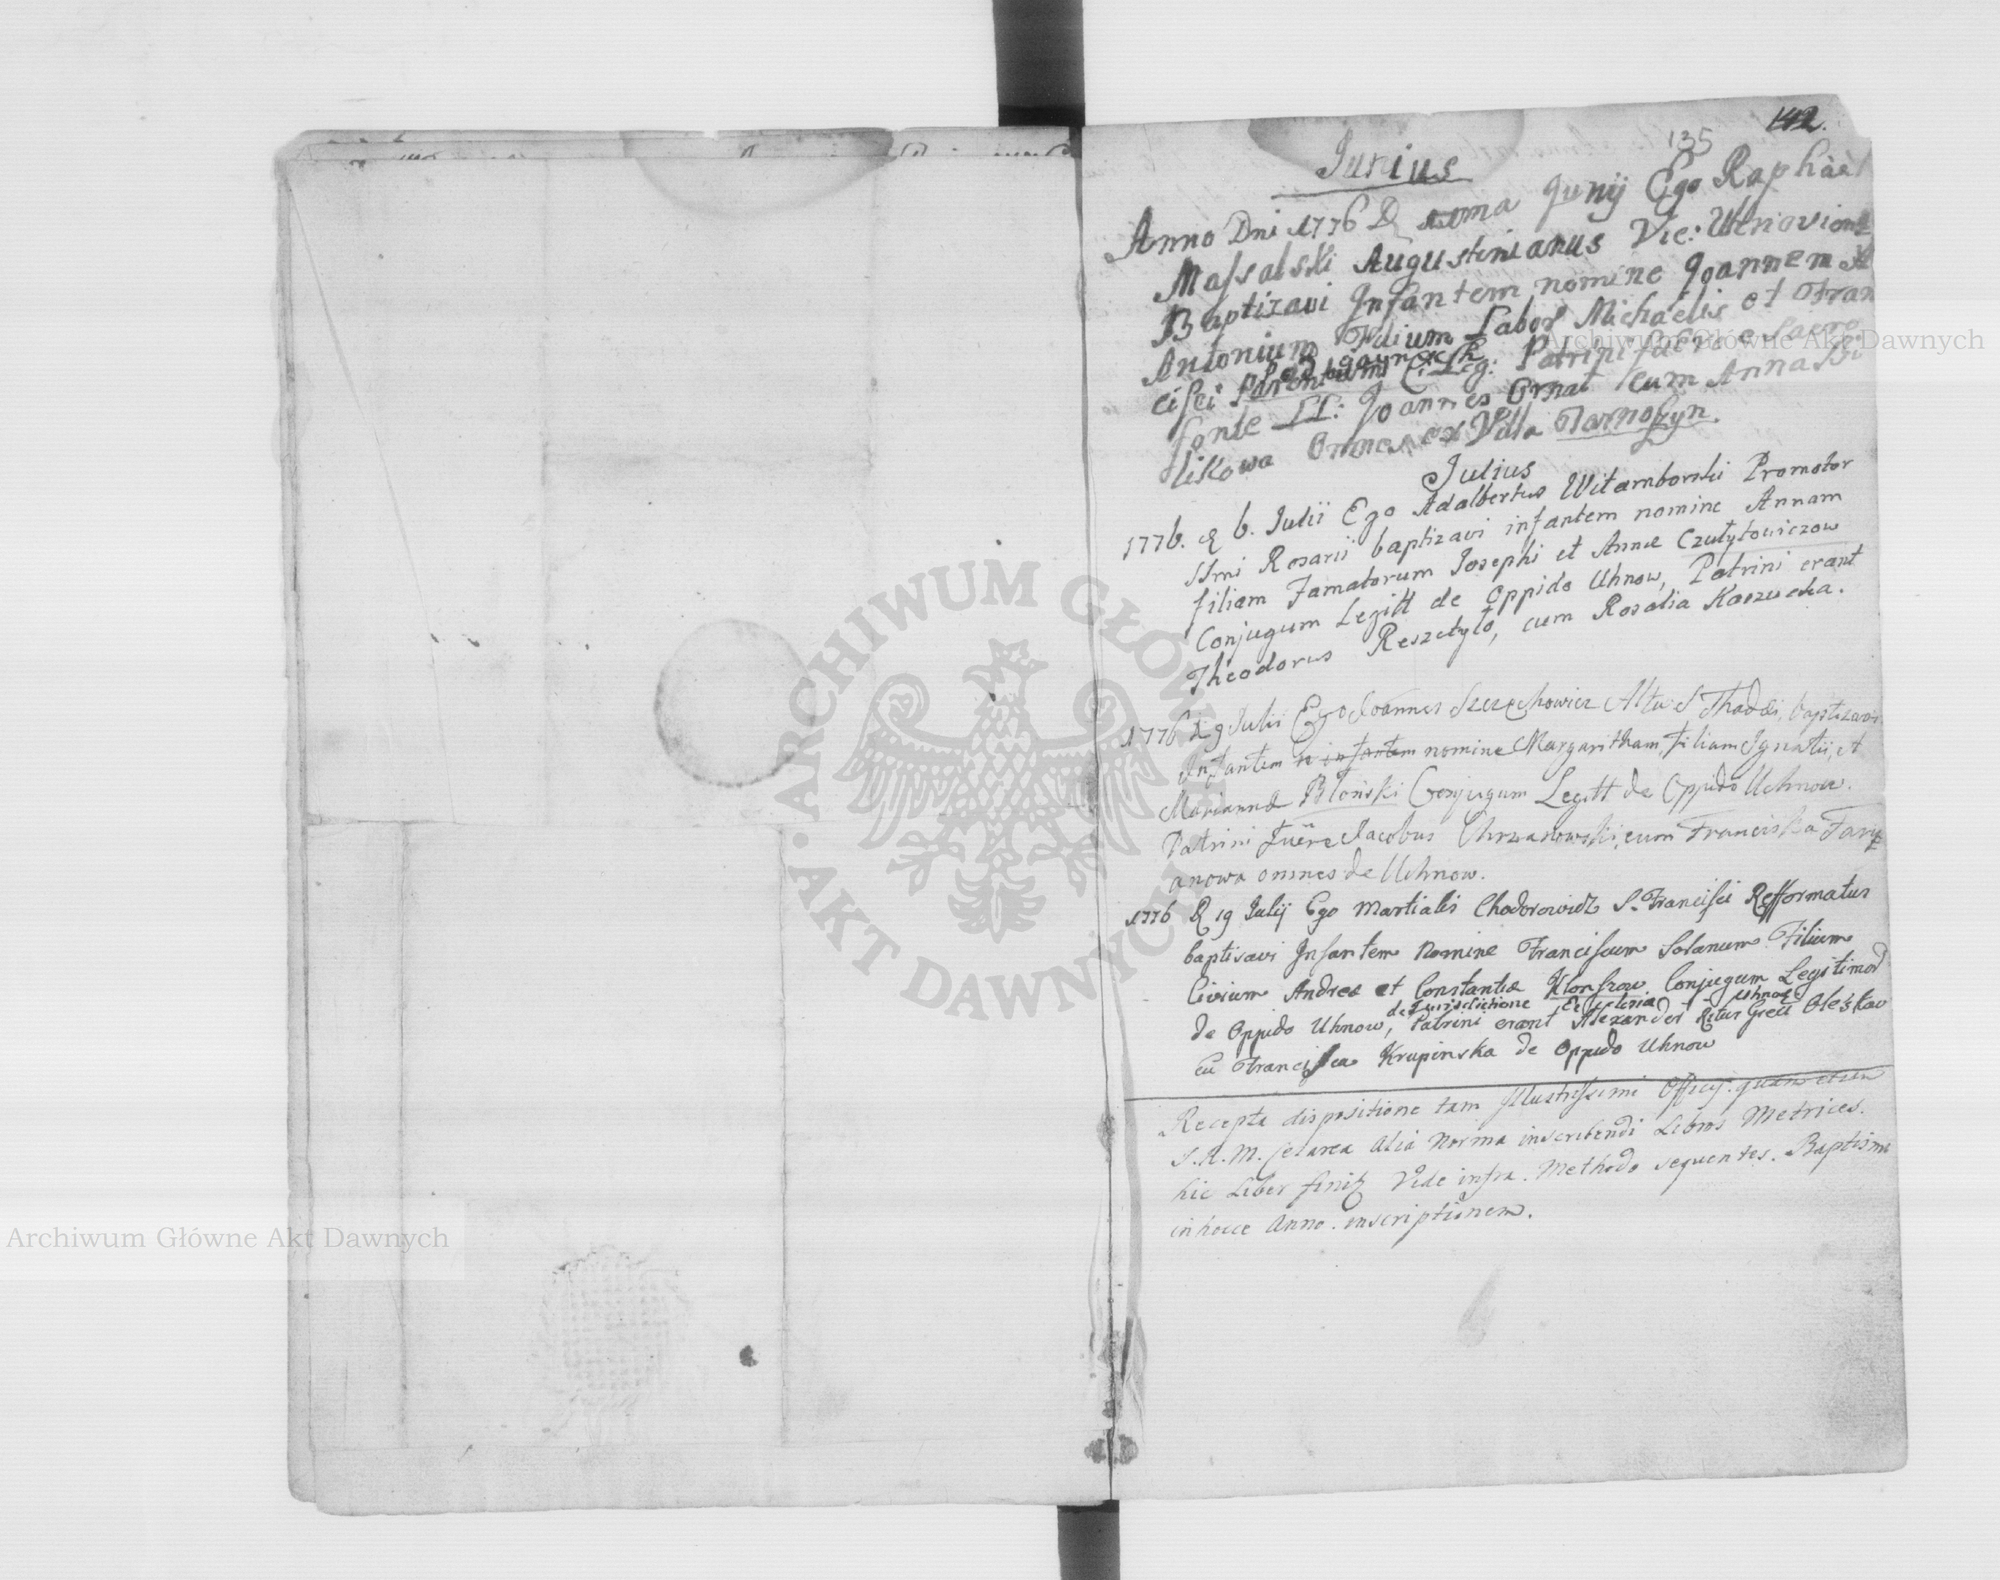 142.
135
Junius
Anno Dni 1776 D Junij Ego Raphael
Massalski Augustinianus Vic: Uhnovien
Baptizavi Infantem nomine Joannem
Antonium Filium Labor Michaelis et Fran
cisci C. Leg: Patrini fuere e Sacro
fonte LL: Joannes Ornat cum Anna
likowa Omnes ex Villa Tarnoszyn.
Julius
1776. D 6. Julii Ego Adalbertus Witamborski Promotor
SSmi Rosarii baptizavi infantem nomine Annam
filiam Famatorum Josephi et Annæ Czułytowiczow
Conjugum Legitt de Oppido Uhnow, Patrini erant
Theodorus Reszetyło, cum Rosalia Kaszucka.
1776 D 9 Julii Ego Joannes Szczechowicz Alta S Thadæi, baptizavi
Infantem infantem nomine Margaritham, filiam Ignatii, et
Mariannæ Błonski Conjugum Legitt de Oppido Uchnow.
Patrini fuere Jacobus Chrzanowski, cum Franciska Fary
anowa omnes de Uchnow.
1776 D 19 Julij Ego Martialis Chodorowicz S. Francisci Refformatus
baptisavi Infantem Nomine Franciscum Solanum Filium
Civium Andreæ et Constantiæ Klonszow Conjugum Legitimor
de Jurisdictione Ecclesia Uhnow
de Oppido Uhnow, Patrini erant Alexander Ritus Græci Oleskow
Cu Francisca Krupinska de Oppido Uhnow
Recepta dispositione tam Illustrissimi Officij. quam etiam
S. R. M. Cesarea alia Norma inscribendi Libros Metrices.
hic Liber finit Vide infra. Methodo sequentes. Baptismi
in hocce Anno. inscriptionem.
Archiwum Główne Akt Dawnych
Archiwum Główne Akt Dawnych
ARCHIWUM GŁÓWNE AKT DAWNYCH